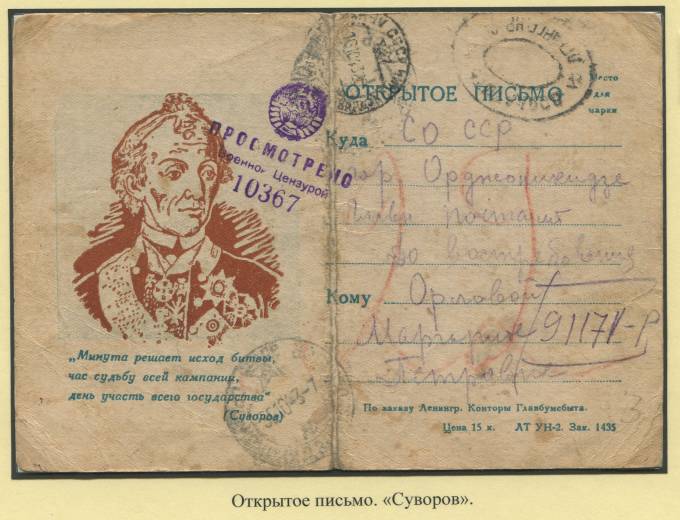 ОТКРЫТОЕ ПИСЬМО
Место
для
марки
ПРОСМОТРЕНО
Военной Цензурой
10367
Куда СО ССР
гор Орджоникидзе
почтамт
до востребования
Кому Орловой
Маргарите
Петровне
„Минута решает исход битвы,
час судьбу всей кампании,
день участь всего государства“
(Суворов)
По заказу Ленингр. Конторы Главбумсбыта.
Цена 15 к. АТ УН-2. Зак. 1435
Открытое письмо. «Суворов».